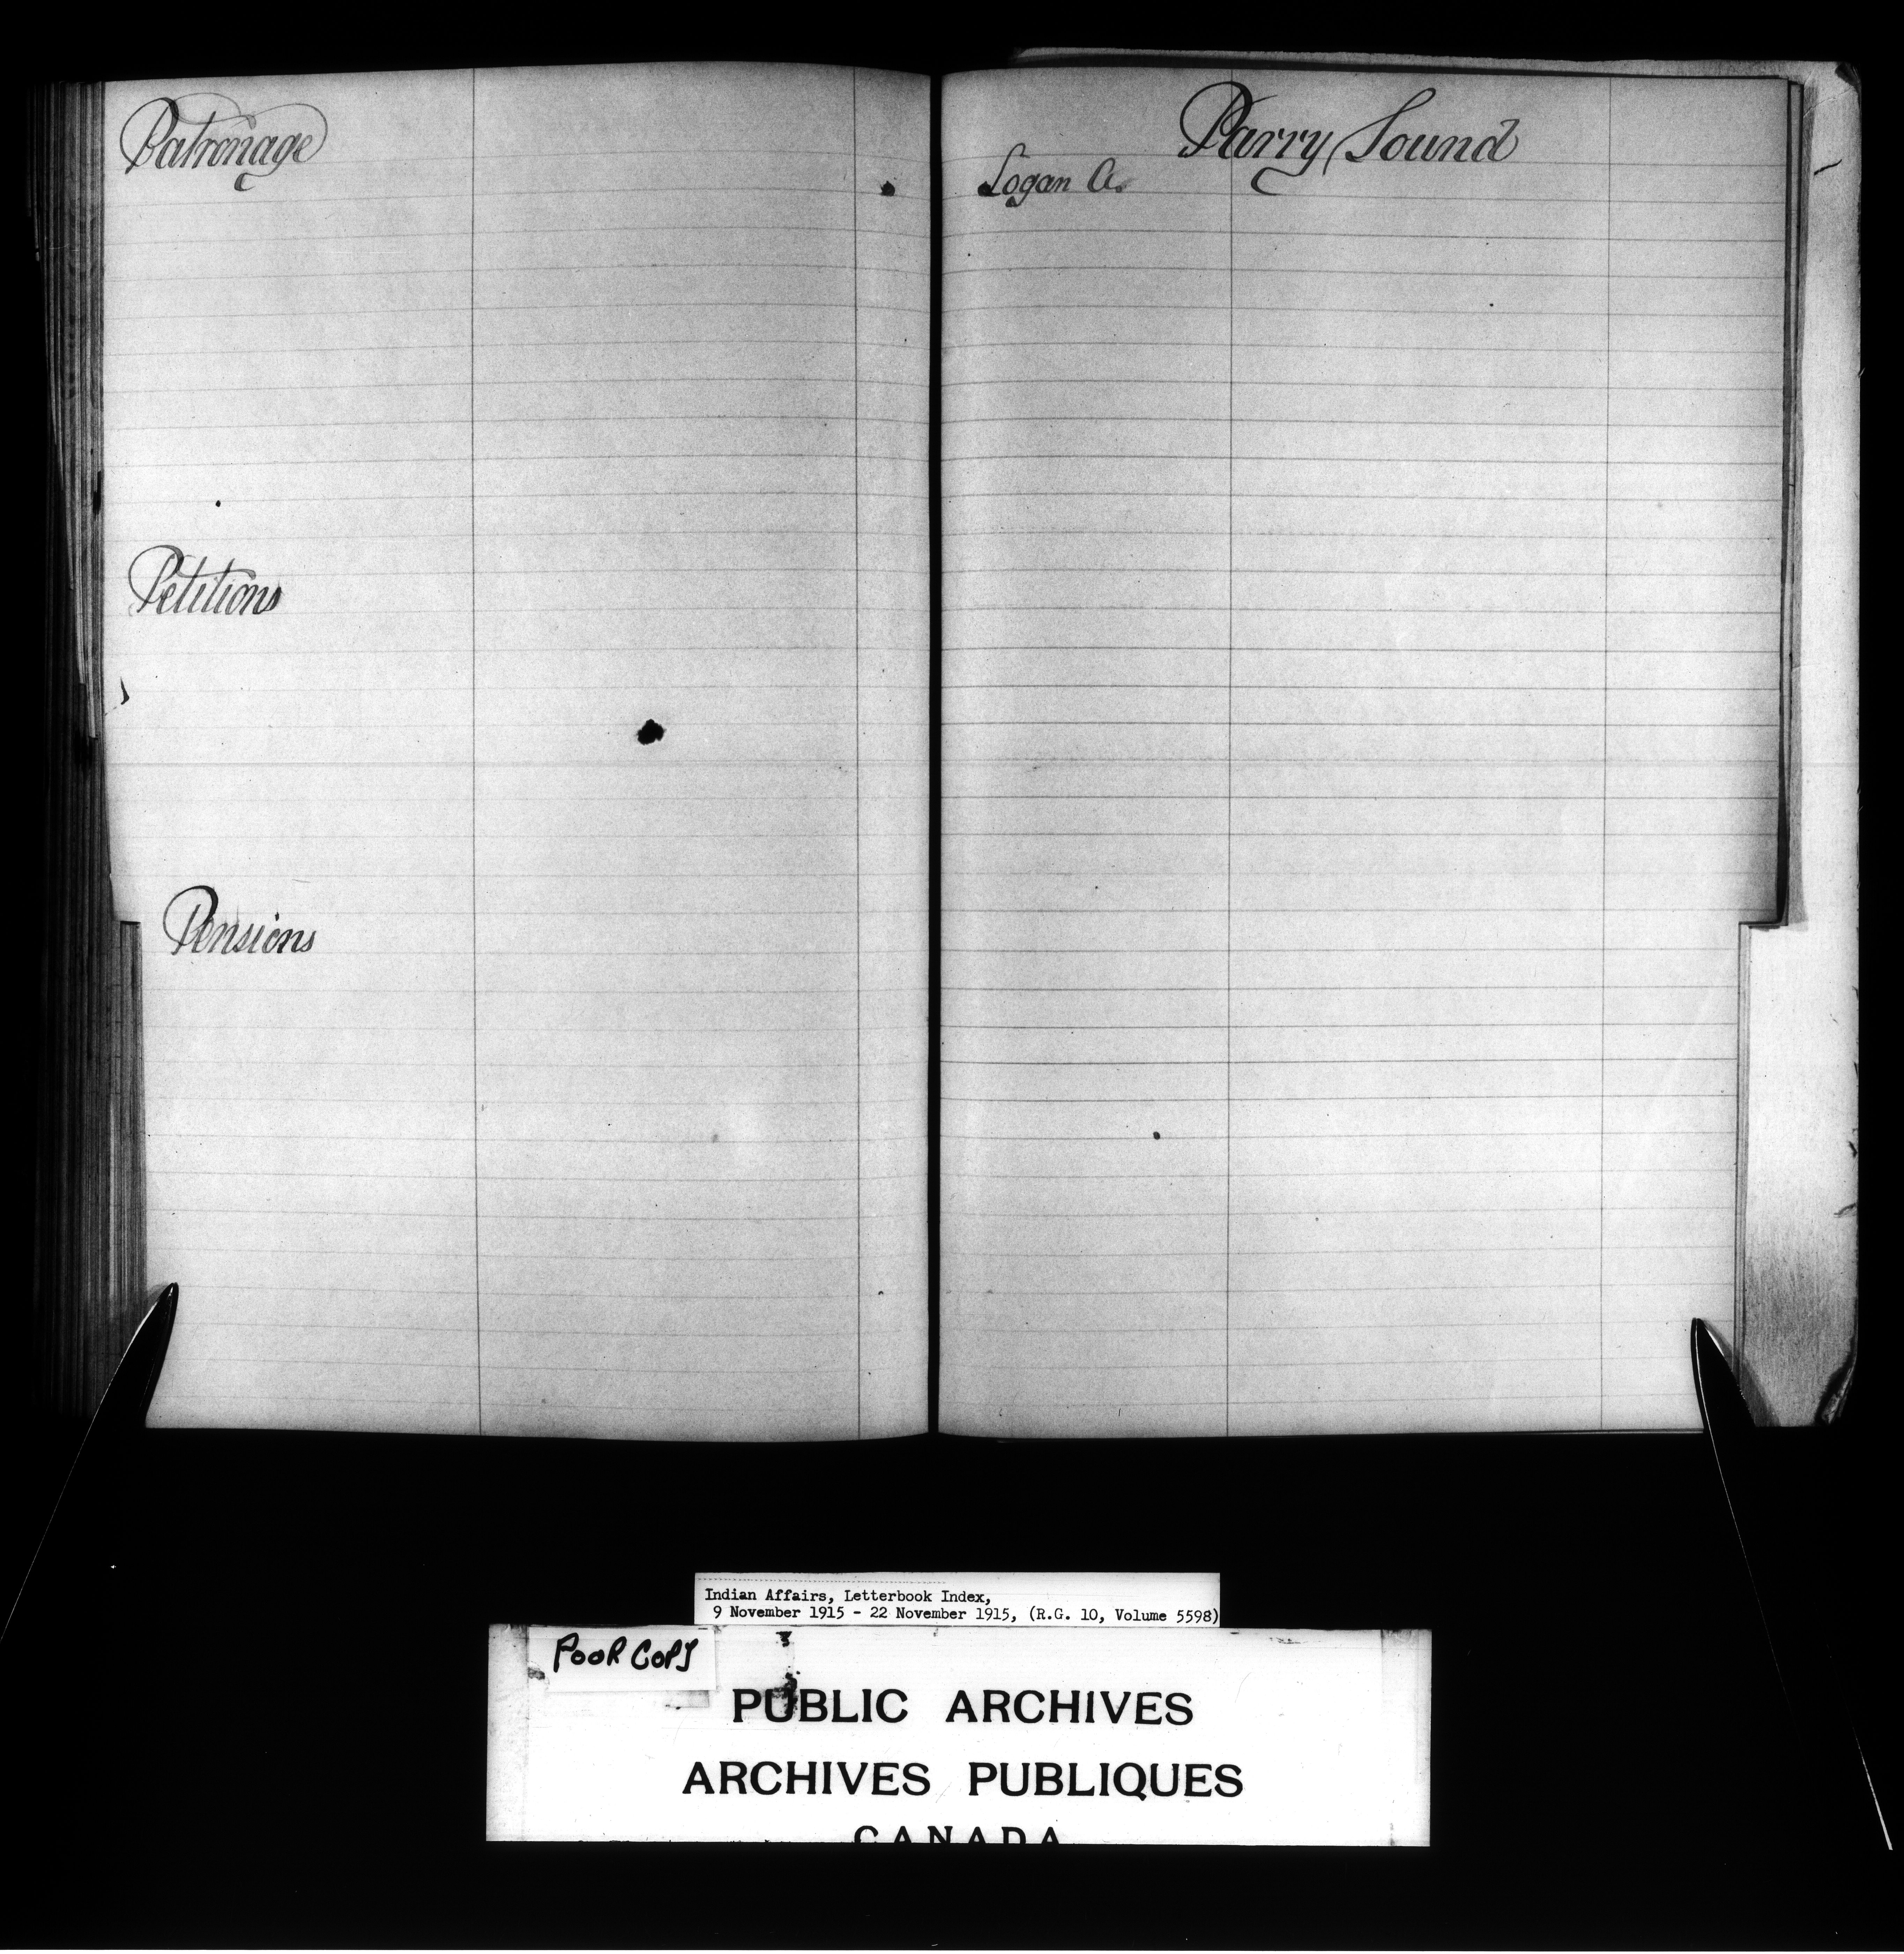 Patronage
Petitions
Pensions
Parry Sound
Logan A.
Indian Affairs, Letterbook Index,
9 November 1915 - 22 November 1915, (R.G. 10, Volume 5598)
POOR COPY
PUBLIC ARCHIVES
ARCHIVES PUBLIQUES
CANADA